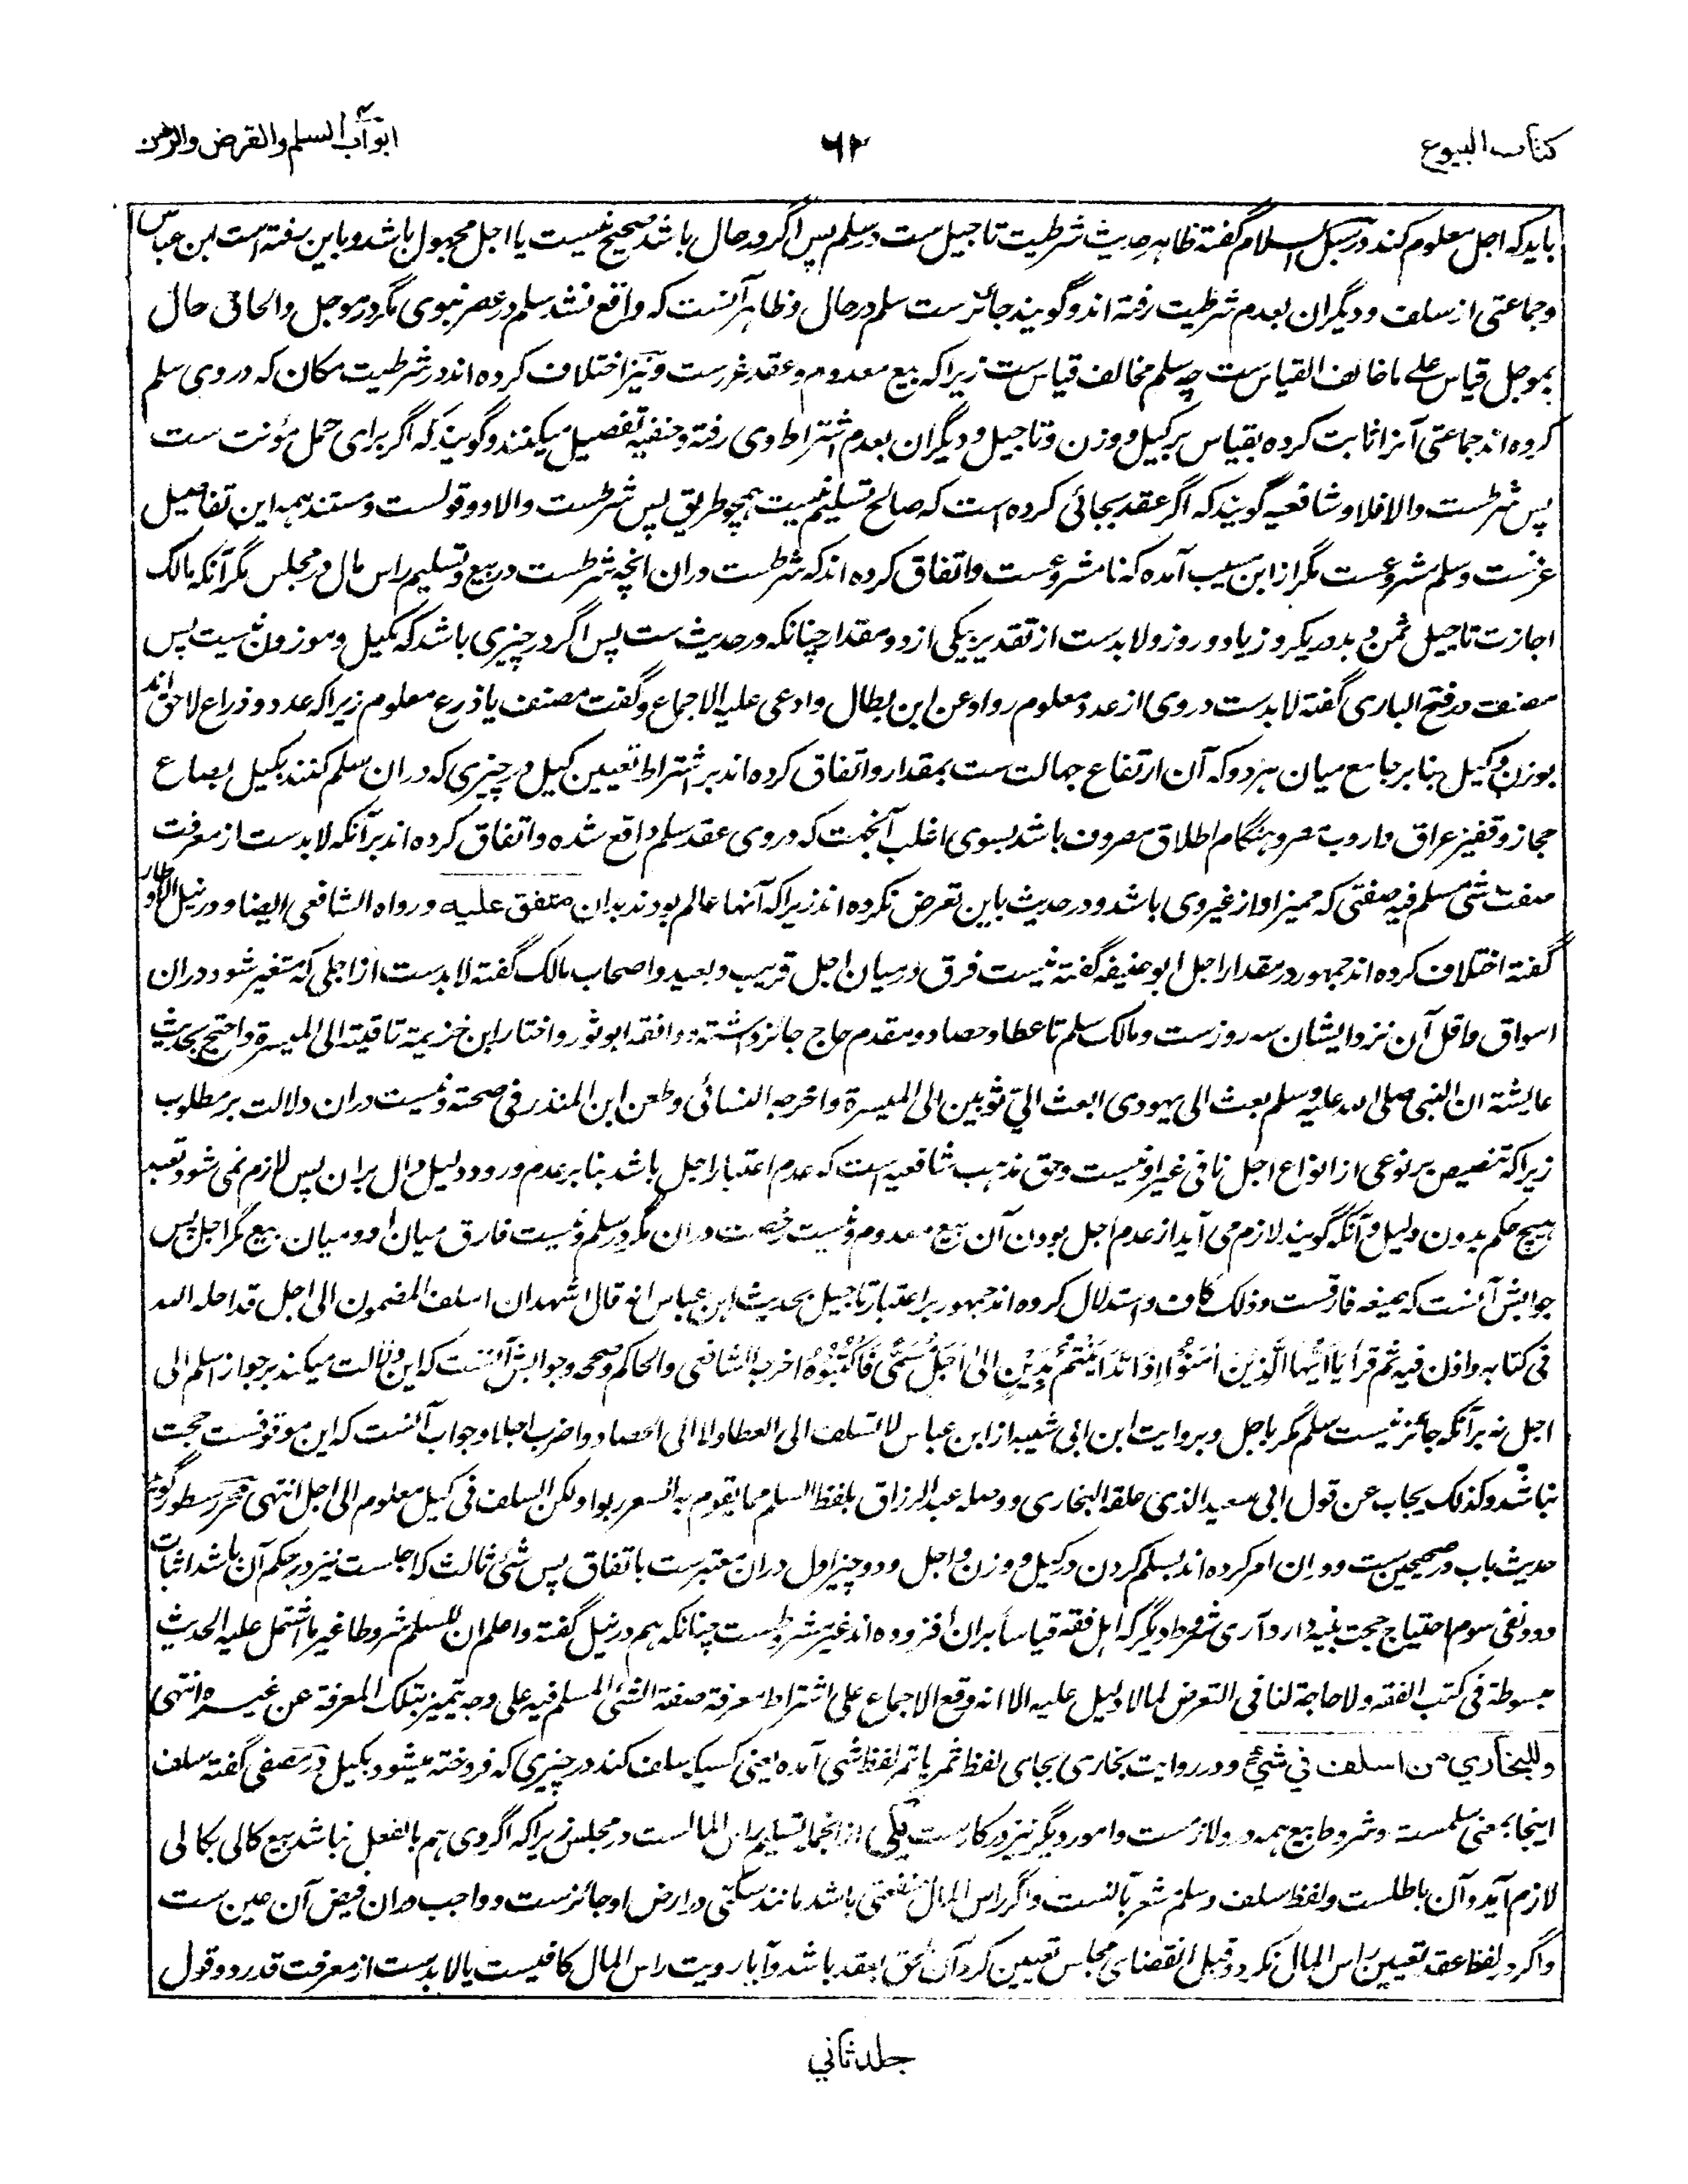 کتاب البیوع
۶۲
ابواب السلم والقرض والرهن
باید که اجل معلوم کند در سبل السلام گفته ظاہر حدیث شرطیت تاجیل ست در سلم پس اگر در حال باشد صحیح نیست یا اجل مجہول باشد و باین رفته است ابن عباس
و جماعتی از سلف و دیگران بعدم شرطیت رفته اند و گویند جائز ست سلم در حال و ظاہر آنست که واقع نشد سلم در عصر نبوی مگر در موجل و الحاق حال
بموجل قیاس علے ما خالف القیاس ست چه سلم مخالف قیاس ست زیرا که بیع معدوم و عقد غرر ست و نیز اختلاف کرده اند در شرطیت مکان که در وی سلم
کرده اند جماعتی آنرا ثابت کرده بقیاس بر کیل و وزن و تاجیل و دیگران بعدم اشتراط وی رفته و حنفیه تفصیل میکنند و گویند که اگر برای حمل مؤنت ست
پس شرطست والا فلا و شافعیه گویند که اگر عقد بجائی کرده است که صالح تسلیم نیست ہمچو طریق پس شرطست والا دو قولست و مستند ہمه این تفاصیل
عرفست و سلم مشروعست مگر از ابن مسیب آمده که نامشروعست و اتفاق کرده اند که شرطست دران انچه شرطست در بیع و تسلیم راس مال در مجلس مگر آنکه مالک
اجازت تاجیل ثمن و بد در یکروز یا دو روز و لابدست از تقدیر بیکی از دو مقدار چنانکه در حدیث ست پس اگر در چیزی باشد که مکیل و موزون نیست پس
مصنف در فتح الباری گفته لابدست در وی از عدد معلوم رواه عن ابن بطال و ادعی علیه الاجماع و گفت مصنف یا ذرع معلوم زیرا که عدد و ذراع لاحق اند
بوزن و کیل بنا بر جامع میان ہر دو که آن ارتفاع جہالت ست بمقدار و اتفاق کرده اند بر اشتراط تعیین کیل در چیزی که دران سلم کنند بکیل بصاع
حجاز و قفیز عراق و اردب مصر و ہنگام اطلاق مصروف باشد بسوی اغلب آنجہت که در وی عقد سلم واقع شده و اتفاق کرده اند بر آنکه لابدست از معرفت
صفت شئ مسلم فیه صفتی که ممیز او از غیر وی باشد و در حدیث باین تعرض نکرده اند زیرا که آنہا عالم بودند بدان متفق علیه و رواه الشافعی ایضا و در نیل الاوطار
گفته اختلاف کرده اند جمہور در مقدار اجل ابو حنیفه گفته نیست فرق درمیان اجل قریب و بعید و اصحاب مالک گفته لابدست از اجلی که متغیر شود دران
اسواق و اقل آن نزد ایشان سه روز ست و مالک سلم تا عطا و حصاد و مقدم حاج جائز داشته و وافقه ابو ثور و اختار ابن خزیمة تاقیته الی المیسرة و احتج بحدیث
عایشة ان النبی صلی الله علیه و سلم بعث الی یہودی ابعث الیّ ثوبین الی المیسرة و اخرجه النسائی و طعن ابن المنذر فی صحته و نیست دران دلالت بر مطلوب
زیرا که تنصیص بر نوعی از انواع اجل نافی غیر او نیست و حق مذہب شافعیه است که عدم اعتبار اجل باشد بنا بر عدم ورود دلیل دال بران پس لازم نمی شود تعبد
بہیچ حکم بدون دلیل و آنکه گویند لازم می آید از عدم اجل بودن آن بیع معدوم و نیست رخصت دران مگر در سلم و نیست فارق میان او و میان بیع مگر اجل پس
جوابش آنست که صیغه فارقست و ذلک کاف و استدلال کرده اند جمہور بر اعتبار تاجیل بحدیث ابن عباس انه قال اشهد ان السلف المضمون الی اجل قد احله الله
فی کتابه و اذن فیه ثم قرأ یَا اَیُّهَا الَّذِیْنَ اٰمَنُوْا اِذَا تَدَایَنْتُمْ بِدَیْنٍ اِلٰی اَجَلٍ مُّسَمًّی فَاکْتُبُوْهُ اخرجه الشافعی و الحاکم و صححه و جوابش آنست که این دلالت میکند بر جواز سلم الی
اجل نه بر آنکه جائز نیست سلم مگر باجل و بروایت ابن ابی شیبه از ابن عباس لا تسلف الی العطا ولا الی الحصاد و اضرب اجلا و جواب آنست که این موقوفست حجت
نباشد و کذلک یجاب عن قول ابی سعید الذی علقه البخاری و وصله عبد الرزاق بلفظ السلم مما یقوم به السعر ربوا و لکن السلف فی کیل معلوم الی اجل انتہی محرر سطور گوید
حدیث باب در صحیحین ست و دران امر کرده اند بسلم کردن در کیل و وزن و اجل و دو چیز اول دران معتبر ست باتفاق پس شئ ثالث که اجلست نیز در حکم آن باشد اثبات
دو و نفی سوم احتیاج حجت بنیه دارد آری شروط دیگر که اہل فقه قیاسا بران افزوده اند غیر شرطست چنانکه ہم در نیل گفته و اعلم ان للسلم شروطا غیر ما اشتمل علیه الحدیث
مبسوطة فی کتب الفقه و لا حاجة لنا فی التعرض لما لا دلیل علیه الا انه وقع الاجماع علی اشتراط معرفة صفة الشئ المسلم فیه علی وجه یتمیز بتلک المعرفة عن غیره انتہی
وللبخاری من اسلف فی شئ و در روایت بخاری بجای لفظ ثمر یا تمر لفظ شی آمده یعنی کسیکه سلف کند در چیزی که فروخته میشود بکیل در مصفی گفته سلف
اینجا بمعنی سلمست و شروط بیع ہمه درو لازمست و امور دیگر نیز درکارست یکی از انجمله تسلیم راس المالست در مجلس زیرا که اگر وی ہم بالفعل نباشد بیع کالی بکالی
لازم آید و آن باطلست و لفظ سلف و سلم مشعر بآنست و اگر راس المال منفعتی باشد مانند سکنی دار ارض او جائزست و واجب دران قبض آن عین ست
و اگر در لفظ عقد تعیین راس المال نکرد و قبل انقضای مجلس تعیین کرد آن ملحق بعقد باشد و آیا رویت راس المال کافیست یا لابدست از معرفت قدر دو قول
جلد ثانی